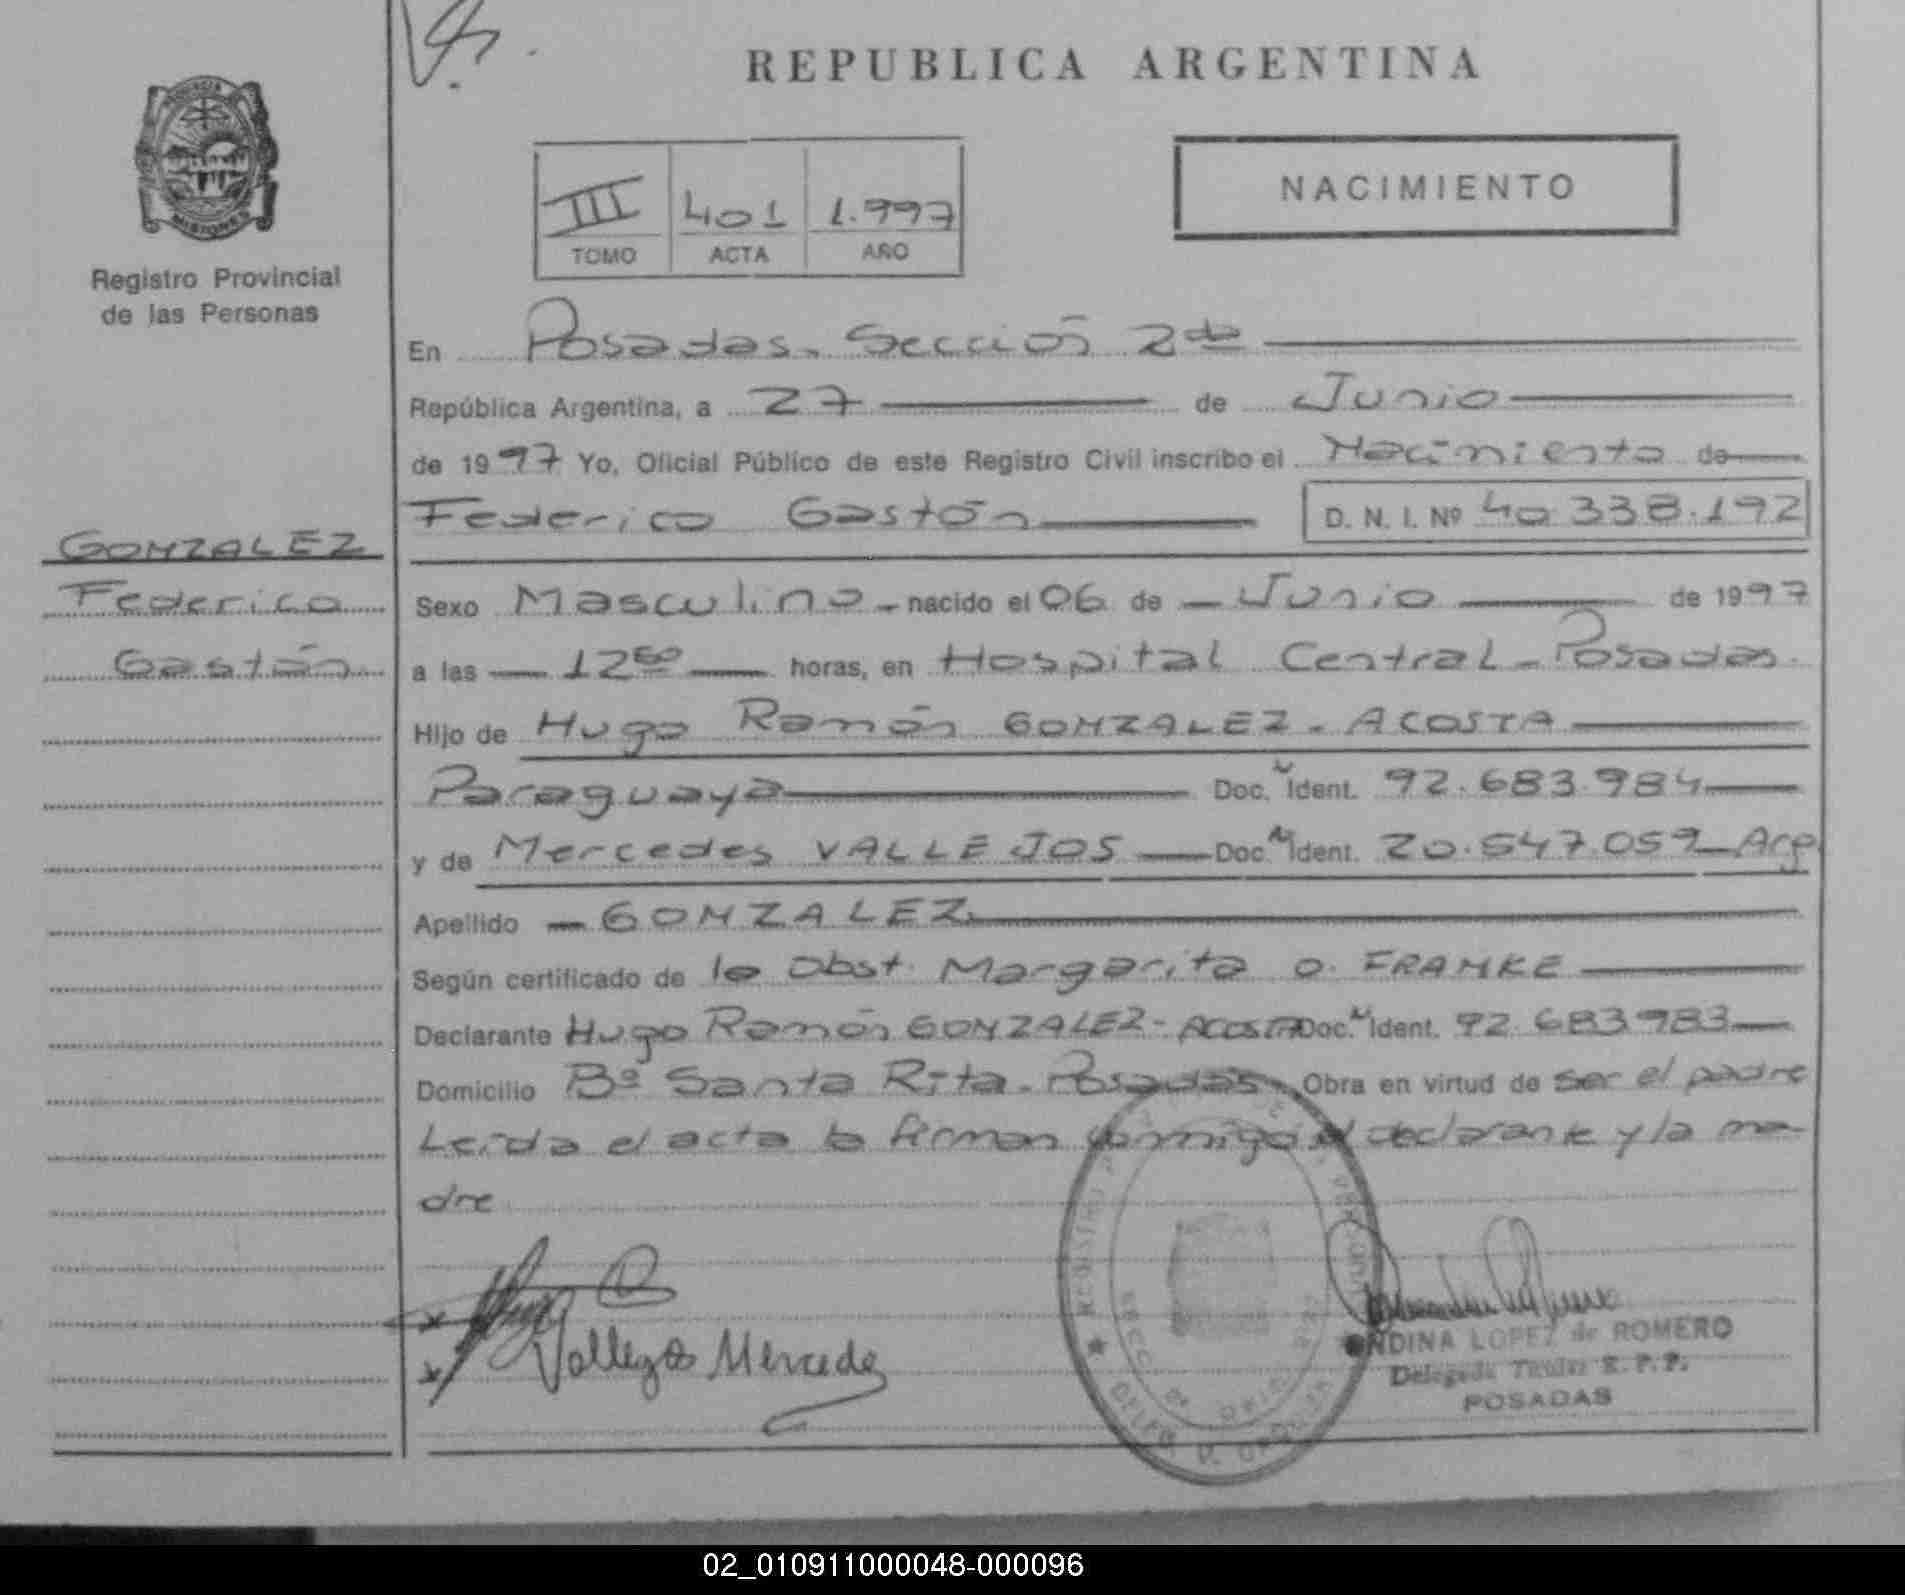 REPUBLICA ARGENTINA
Registro Provincial
de las Personas
III 401 1.997
TOMO ACTA AÑO
NACIMIENTO
En Posadas. Sección 2da
República Argentina, a 27 de Junio
de 1997 Yo, Oficial Público de este Registro Civil inscribo el Nacimiento de
Federico Gastón D. N. I. Nº 40.338.192
GONZALEZ
Federico
Gastón
Sexo Masculino - nacido el 06 de Junio de 1997
a las 12 horas, en Hospital Central - Posadas.
Hijo de Hugo Ramón GONZALEZ - ACOSTA
Paraguaya Doc. Ident. 92.683.984
y de Mercedes VALLEJOS Doc. Ident. 20.547.059 Arg.
Apellido GONZALEZ
Según certificado de la Obst. Margarita O. FRANKE
Declarante Hugo Ramón GONZALEZ - ACOSTA Doc. Ident. 92.683.983
Domicilio Bº Santa Rita - Posadas Obra en virtud de ser el padre
Leída el acta la firman conmigo el declarante y la ma-
dre
Vallejos Mercedes
LOPEZ de ROMERO
Delegada Titular R.P.P.
POSADAS
02_010911000048-000096